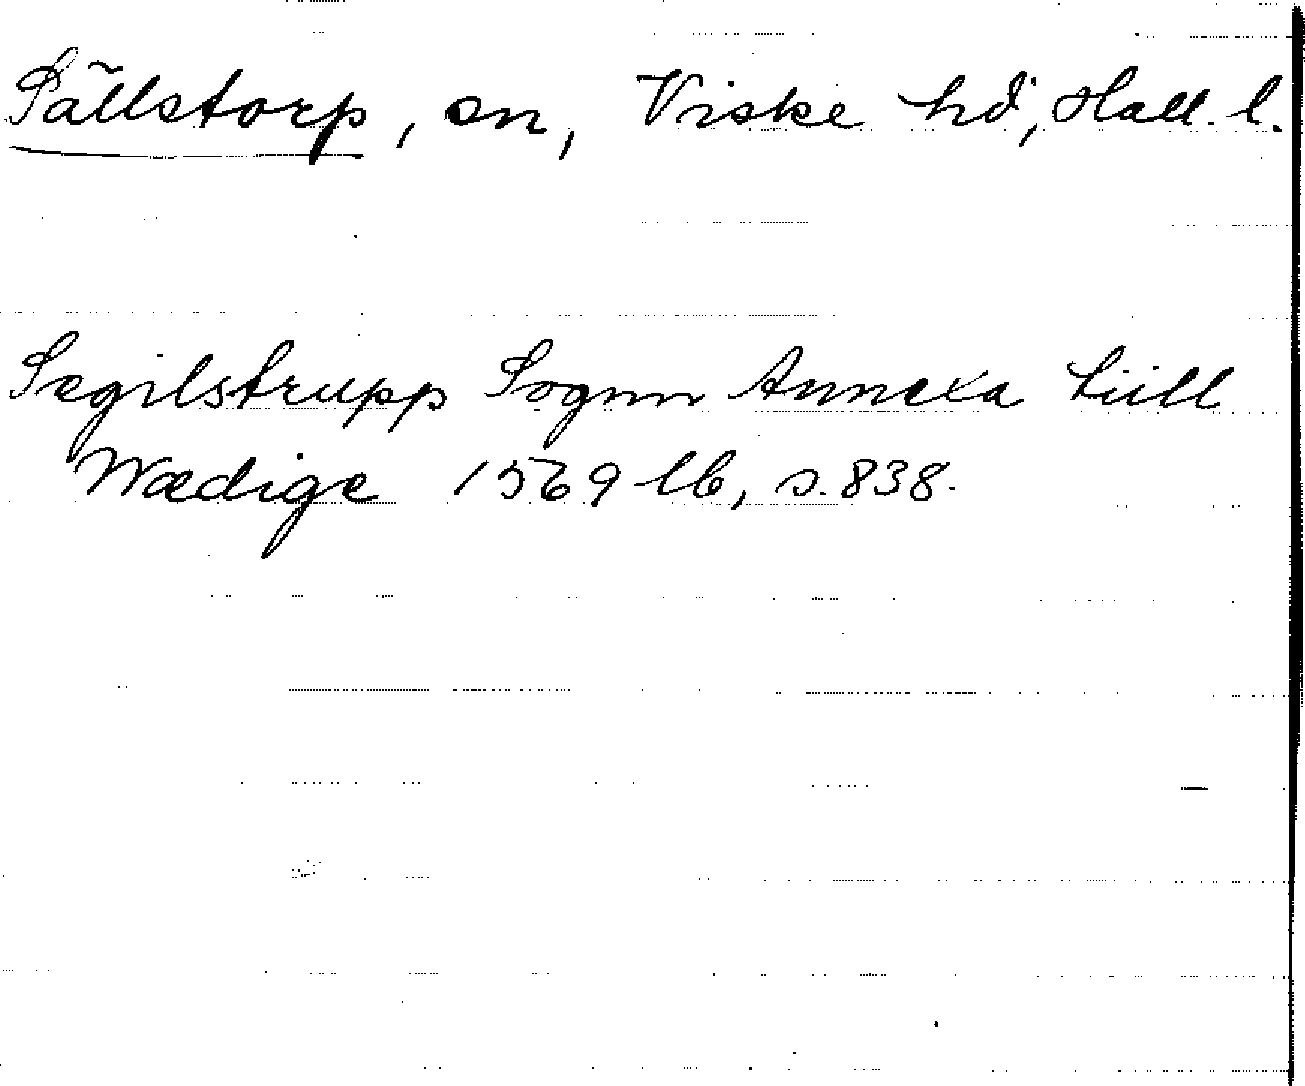 Sällstorp, sn, Viske hd, Hall. l.
Segilstrupp Sognn Annexa tiill
Wædige 1569 lb, s. 838.